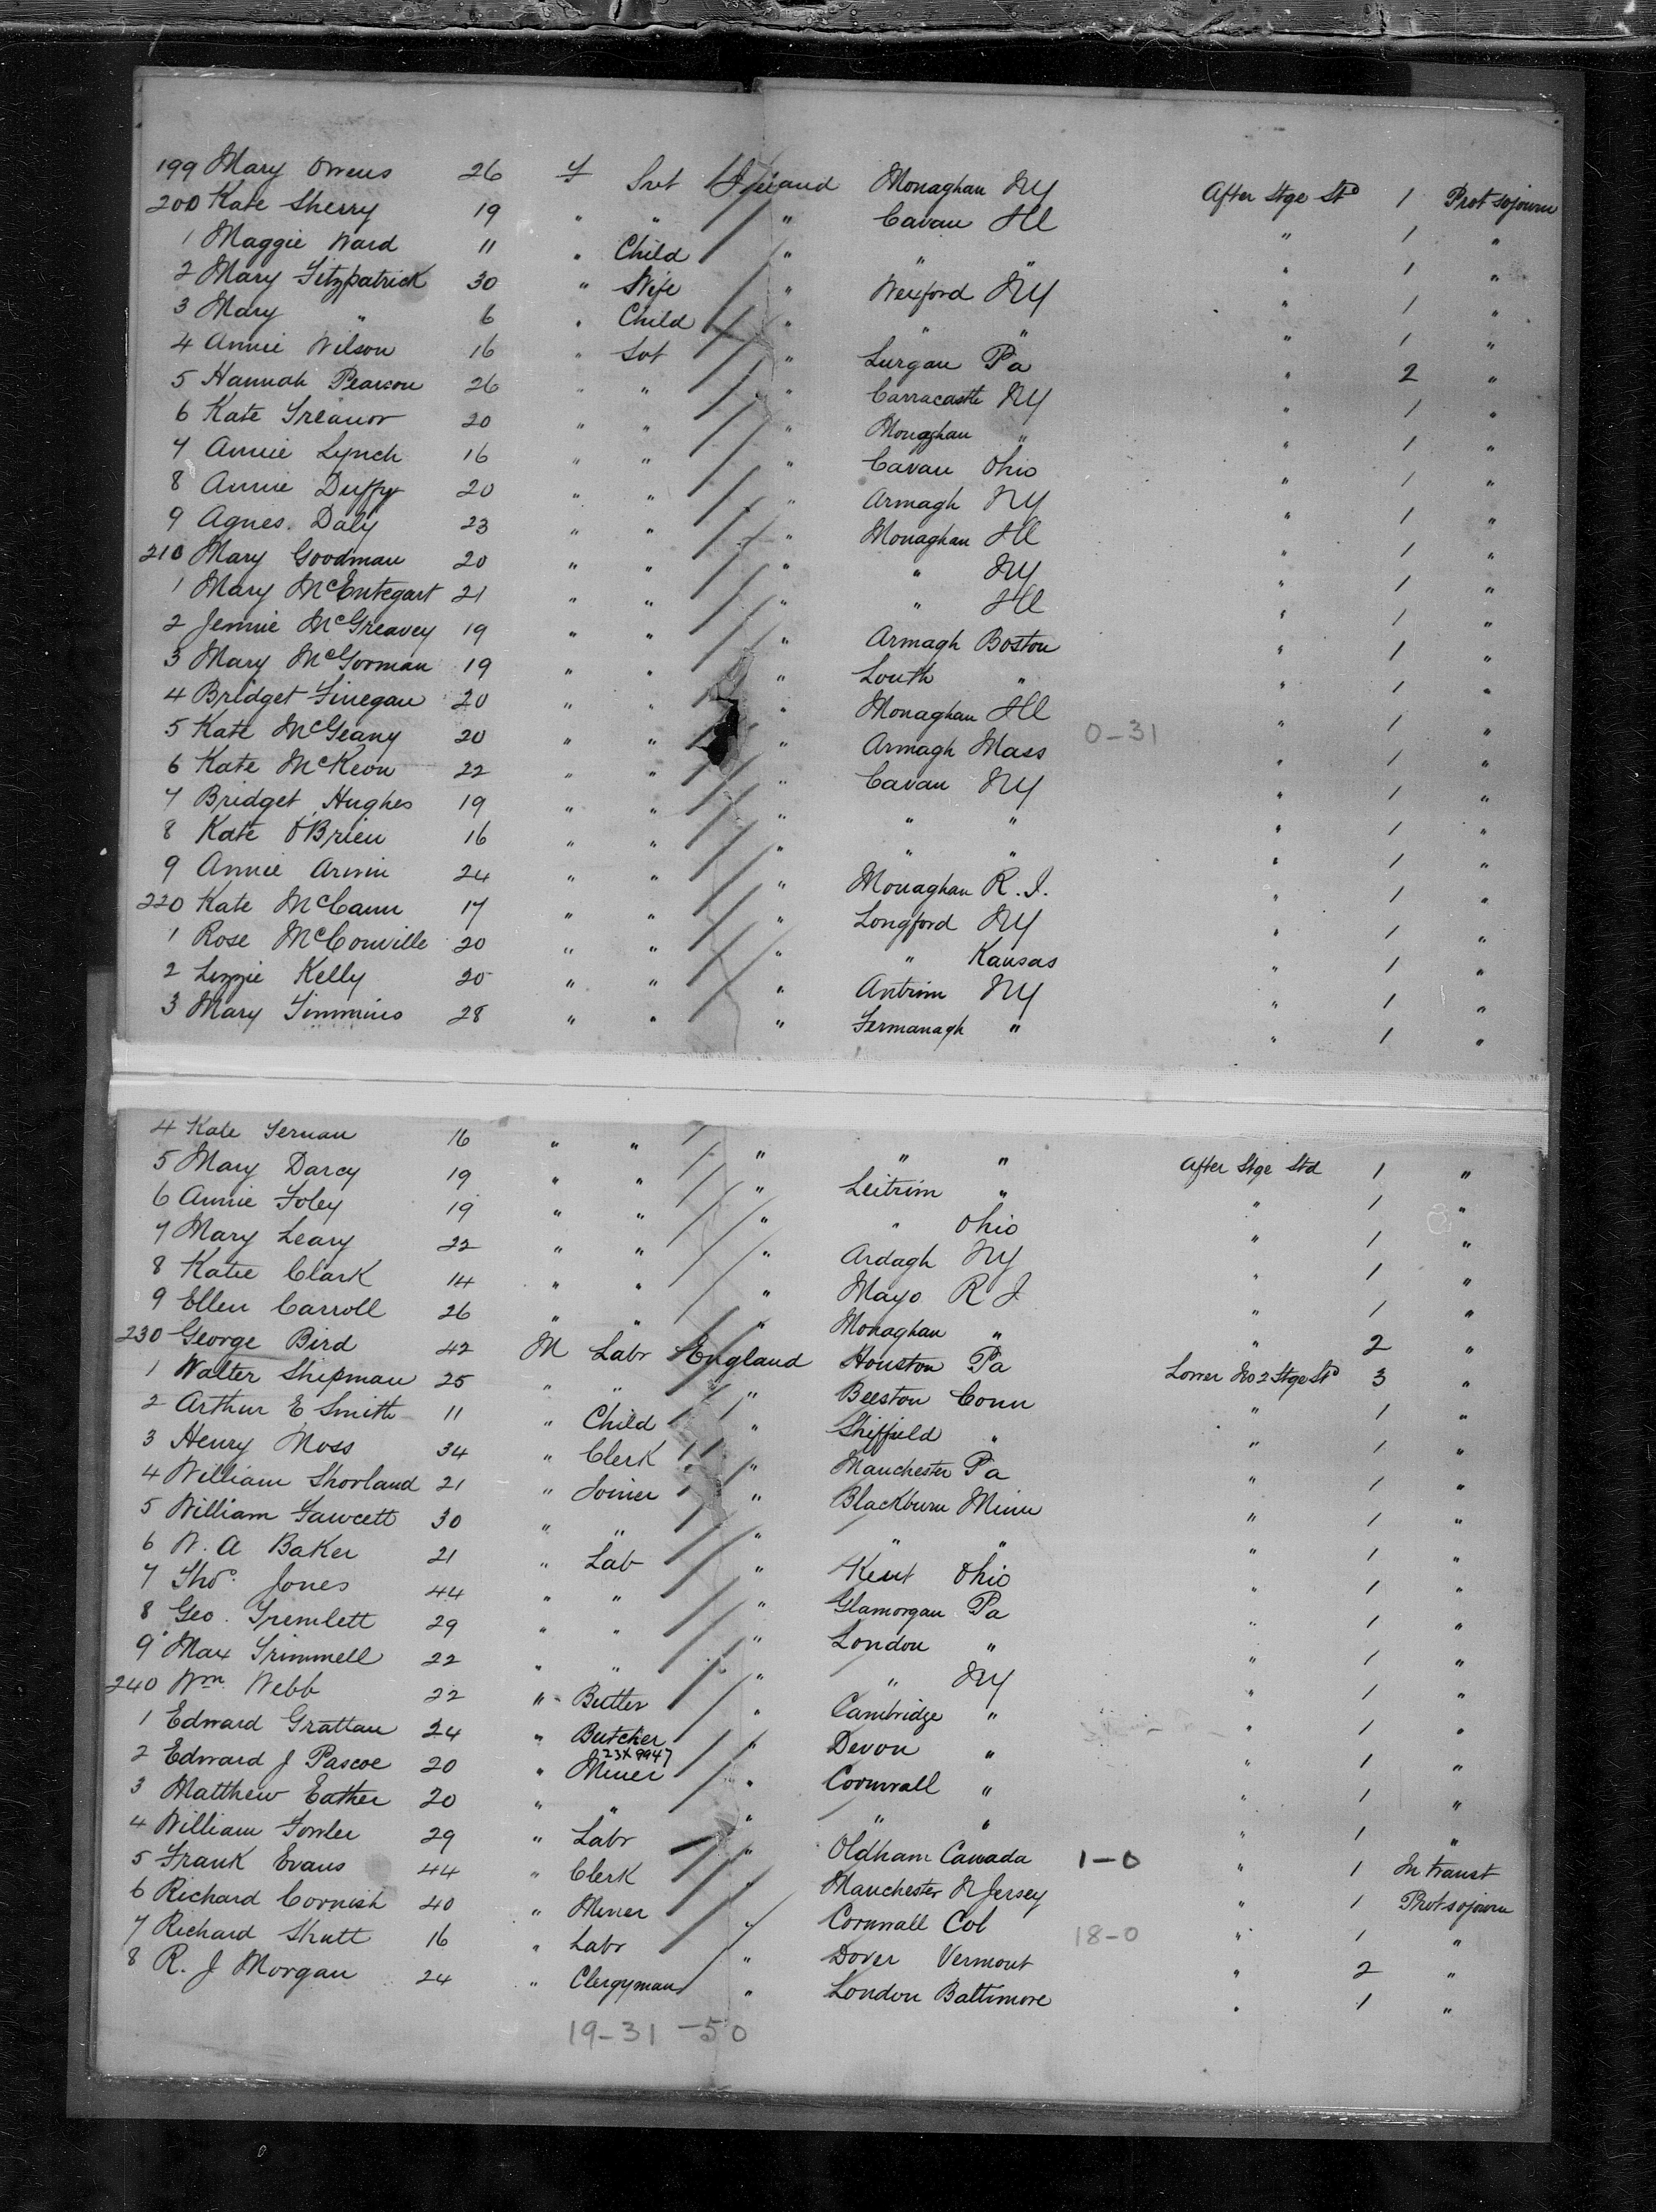 199 Mary Owens 26 F Svt Ireland Monaghan NY After Stge Std 1 Prot sojourn
200 Kate Sherry 19 " " " Cavan Ill " 1 "
1 Maggie Ward 11 " Child " " " " 1 "
2 Mary Fitzpatrick 30 " Wife " Wexford NY " 1 "
3 Mary " 6 " Child " " " " 1 "
4 Annie Wilson 16 " Svt " Lurgan Pa " 2 "
5 Hannah Pearson 26 " " " Carracastle NY " 1 "
6 Kate Treanor 20 " " " Monaghan " " 1 "
7 Annie Lynch 16 " " " Cavan Ohio " 1 "
8 Annie Duffy 20 " " " Armagh NY " 1 "
9 Agnes Daly 23 " " " Monaghan Ill " 1 "
210 Mary Goodman 20 " " " " NY " 1 "
1 Mary McEntegart 21 " " " " Ill " 1 "
2 Jennie McGreavey 19 " " " Armagh Boston " 1 "
3 Mary McGorman 19 " " " Louth " " 1 "
4 Bridget Finegan 20 " " " Monaghan Ill 0-31 " 1 "
5 Kate McGeany 20 " " " Armagh Mass " 1 "
6 Kate McKeon 22 " " " Cavan NY " 1 "
7 Bridget Hughes 19 " " " " " " 1 "
8 Kate O'Brien 16 " " " " " " 1 "
9 Annie 24 " " " Monaghan R.I. " 1 "
220 Kate McCann 17 " " " Longford NY " 1 "
1 Rose McConville 20 " " " " Kansas " 1 "
2 Lizzie Kelly 20 " " " Antrim NY " 1 "
3 Mary Timmins 28 " " " Fermanagh " " 1 "
4 Kate Ternan 16 " " " " " After Stge Std 1 "
5 Mary Darcy 19 " " " Leitrim " " 1 "
6 Annie Foley 19 " " " " Ohio " 1 "
7 Mary Leary 22 " " " Ardagh NY " 1 "
8 Katie Clark 14 " " " Mayo R I " 1 "
9 Ellen Carroll 26 " " " Monaghan " " 2 "
230 George Bird 42 M Labr England Houston Pa Lower No 2 Stge Std 3 "
1 Walter Shipman 25 " " " Beeston Conn " 1 "
2 Arthur E Smith 11 " Child " Sheffield " " 1 "
3 Henry Moss 34 " Clerk " Manchester Pa " 1 "
4 William Shorland 21 " Joiner " Blackburn Minn " 1 "
5 William Fawcett 30 " " " " " " 1 "
6 W. A Baker 21 " Lab " Kent Ohio " 1 "
7 Thos. Jones 44 " " " Glamorgan Pa " 1 "
8 Geo. Tremlett 29 " " " London " " 1 "
9 Max Trimmell 22 " " " " NY " 1 "
240 Wm Webb 22 " Butler " Cambridge " " 1 "
1 Edward Grattan 24 " Butcher " Devon " " 1 "
2 Edward J Pascoe 20 " Miner " Cornwall " " 1 "
3 Matthew Eather 20 " " " " " " 1 "
4 William Fowler 29 " Labr " Oldham Canada 1-0 " 1 In transt
5 Frank Evans 44 " Clerk " Manchester N Jersey " 1 Prot sojourn
6 Richard Cornish 40 " Miner " Cornwall Col 18-0 " 1 "
7 Richard Shutt 16 " Labr " Dover Vermont " 2 "
8 R. J Morgan 24 " Clergyman " London Baltimore " 1 "
19-31-50